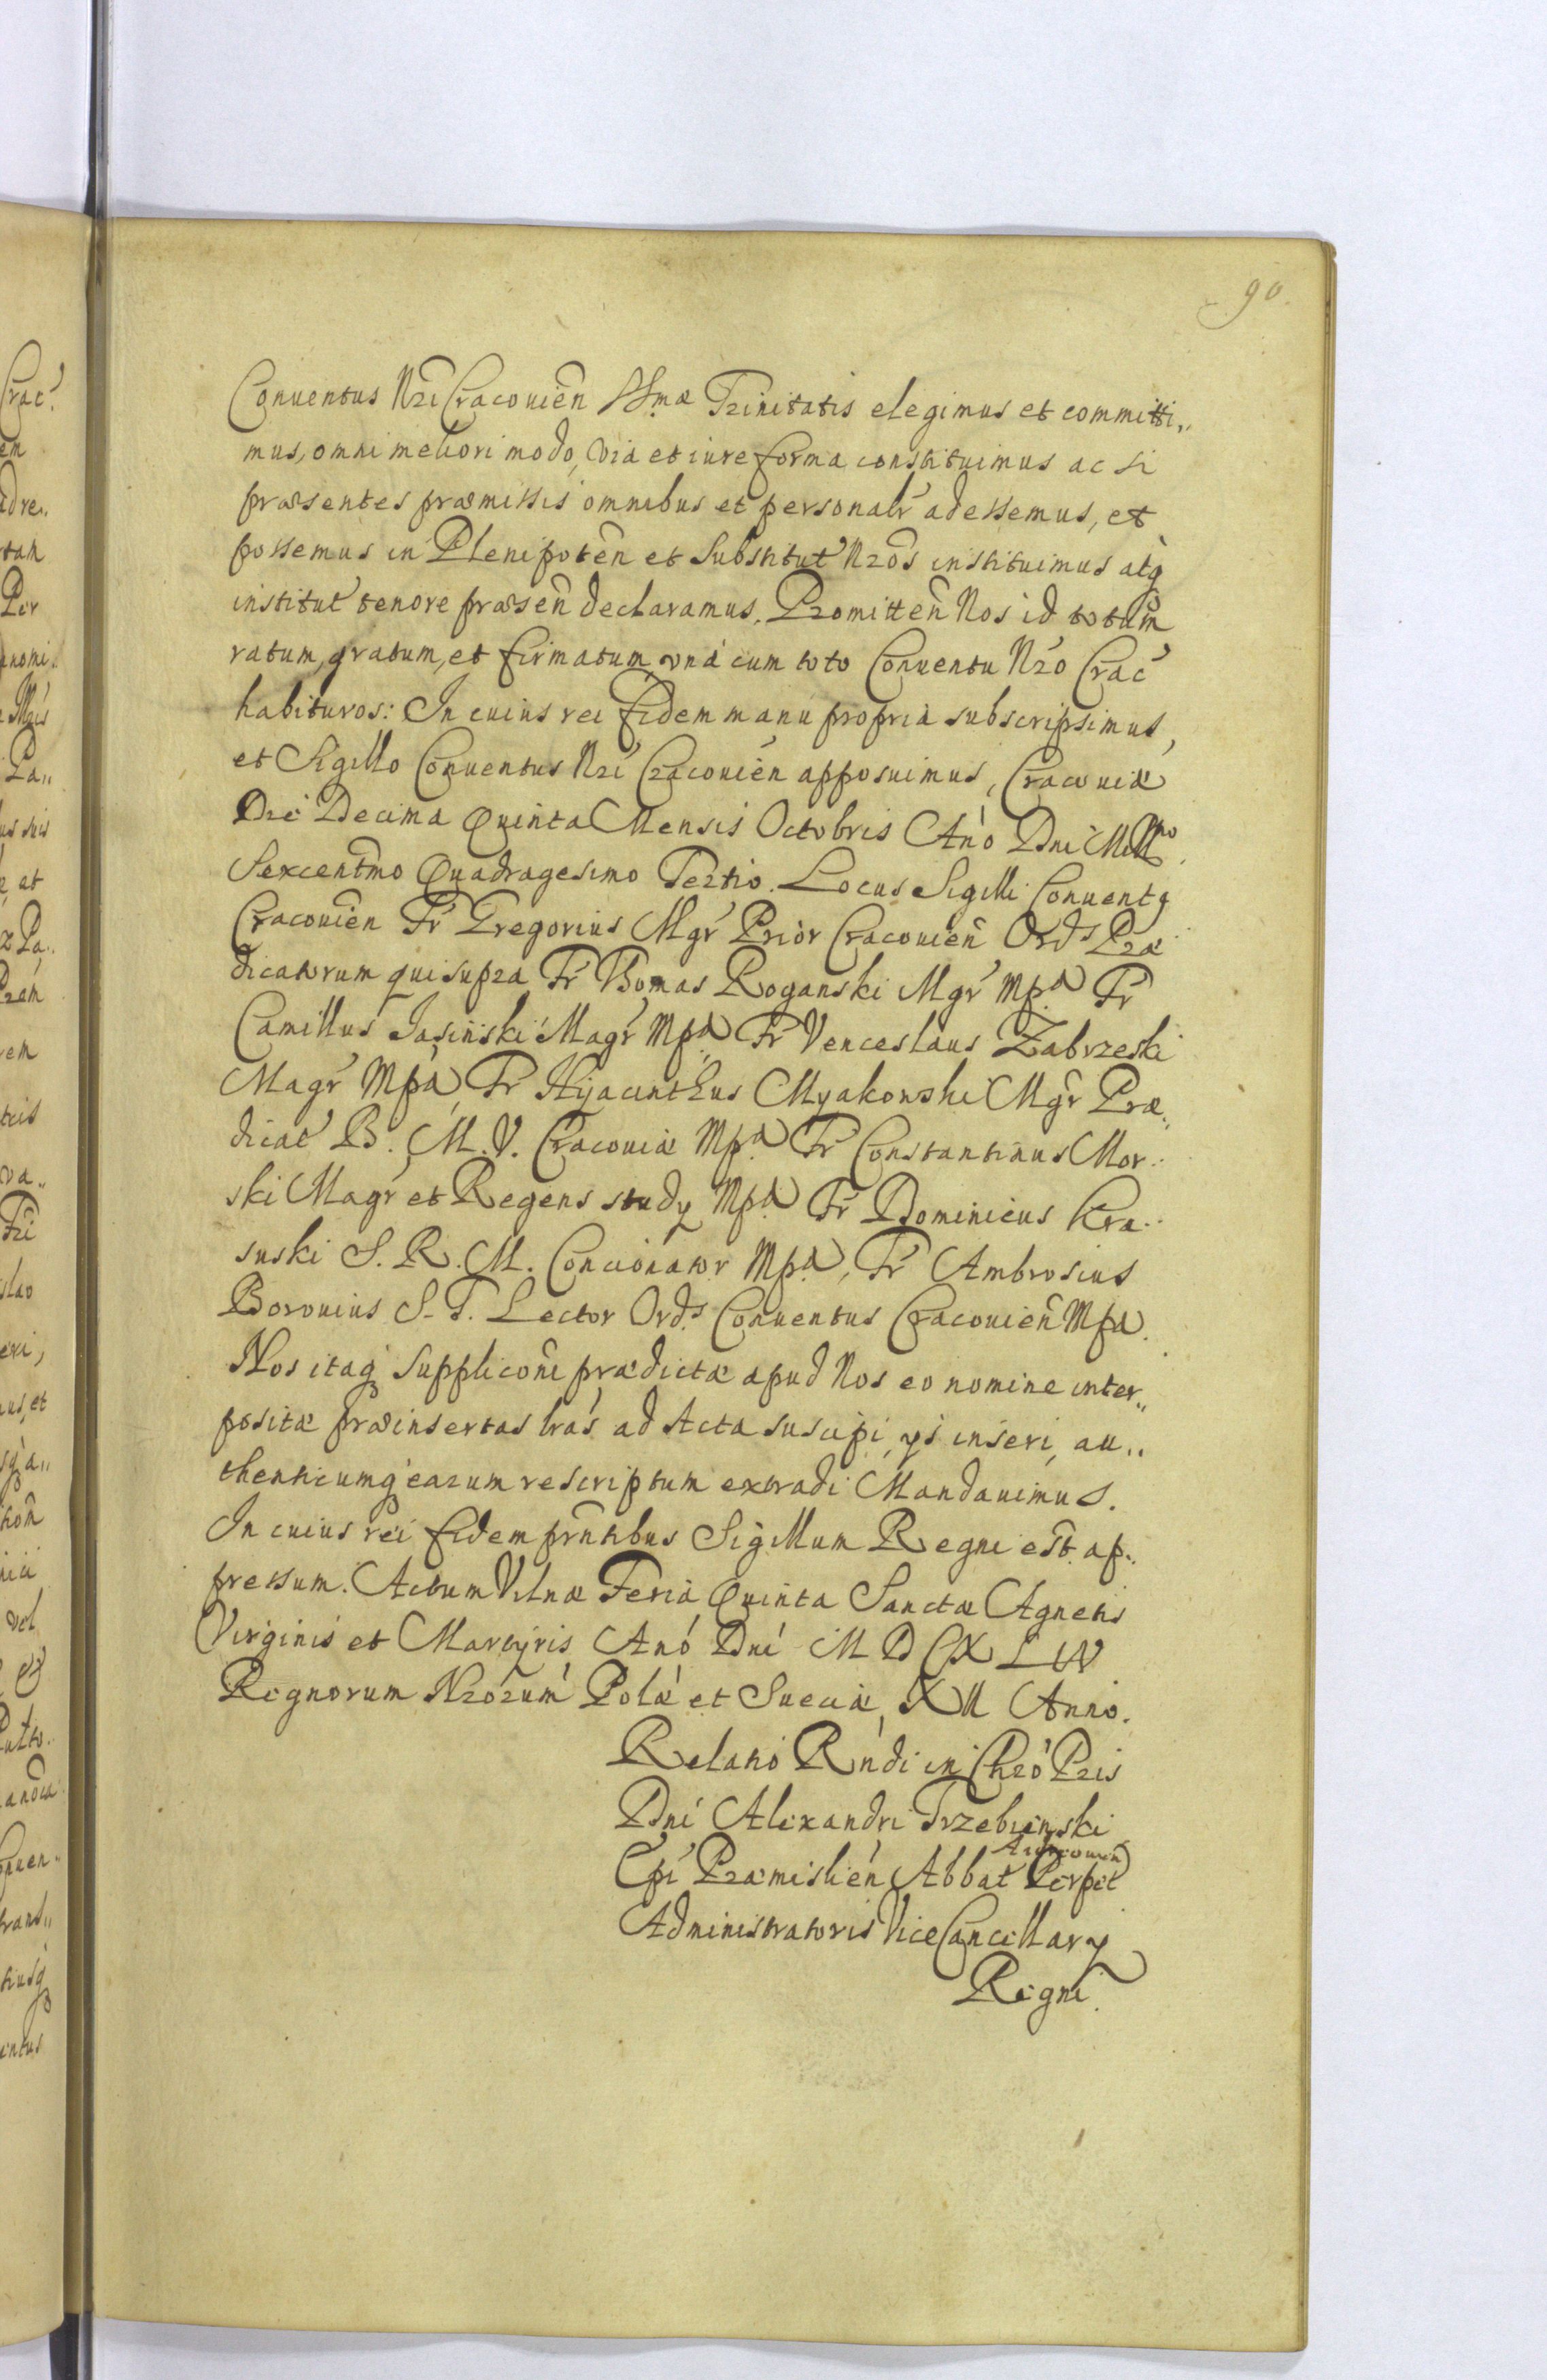 90.
Conuentus Nri Cracouien SSmæ Trinitatis elegimus et committi,,
mus, omni meliori modo, via et iure forma constituimus ac si
præsentes præmissis omnibus et personalr adessemus, et
possemus in Plenipoten et Substitut Nros instituimus atq
institut tenore præsen declaramus. Promitten Nos id totum
ratum, gratum, et firmatum vná cum toto Conuentu Nro Crac
habituros: In cuius rei fidem manu propria subscripsimus,
et Sigillo Conuentus Nri Cracouien apposuimus, Cracouiæ
Die Decima Quinta Mensis Octobris Ano Dni Millmo
Sexcentmo Quadragesimo Tertio. Locus Sigilli Conuentq
Cracouien Fr Gregorius Mgr Prior Cracouien Ords Præ
dicatorum qui supra Fr Thomas Roganski Mgr Mpa Fr
Camillus Jasinski Magr Mpa Fr Venceslaus Zabrzeski
Magr Mpa Fr Hijacinthus Myakowski Mgr Præ,,
dicat B. M. V. Cracouiæ Mpa Fr Constantinus Mor..
ski Magr et Regens study Mpa Fr Dominicus Kra..
suski S. R. M. Concionator Mpa, Fr Ambrosius
Borouius S. T. Lector Ords Conuentus Cracouien Mpa.
Nos itaq suppliconi prædictæ apud Nos eo nomine inter,,
positæ præinsertas lras ad Acta suscipi, ys inseri, au,,
thenticumq earum rescriptum extradi Mandauimus.
In cuius rei fidem prntibus Sigillum Regni est ap..
pressum. Actum Vilnæ Feria Quinta Sanctæ Agnetis
Virginis et Martyris Ano Dni M D CX L IV
Regnorum Nrorum Polæ et Sueciæ XII Anno.
Relatio Rndi in Chro Pris
Dni Alexandri Trzebinski
Epi Præmislien Abbat Perpet
Administratoris ViceCancellary
Regni.